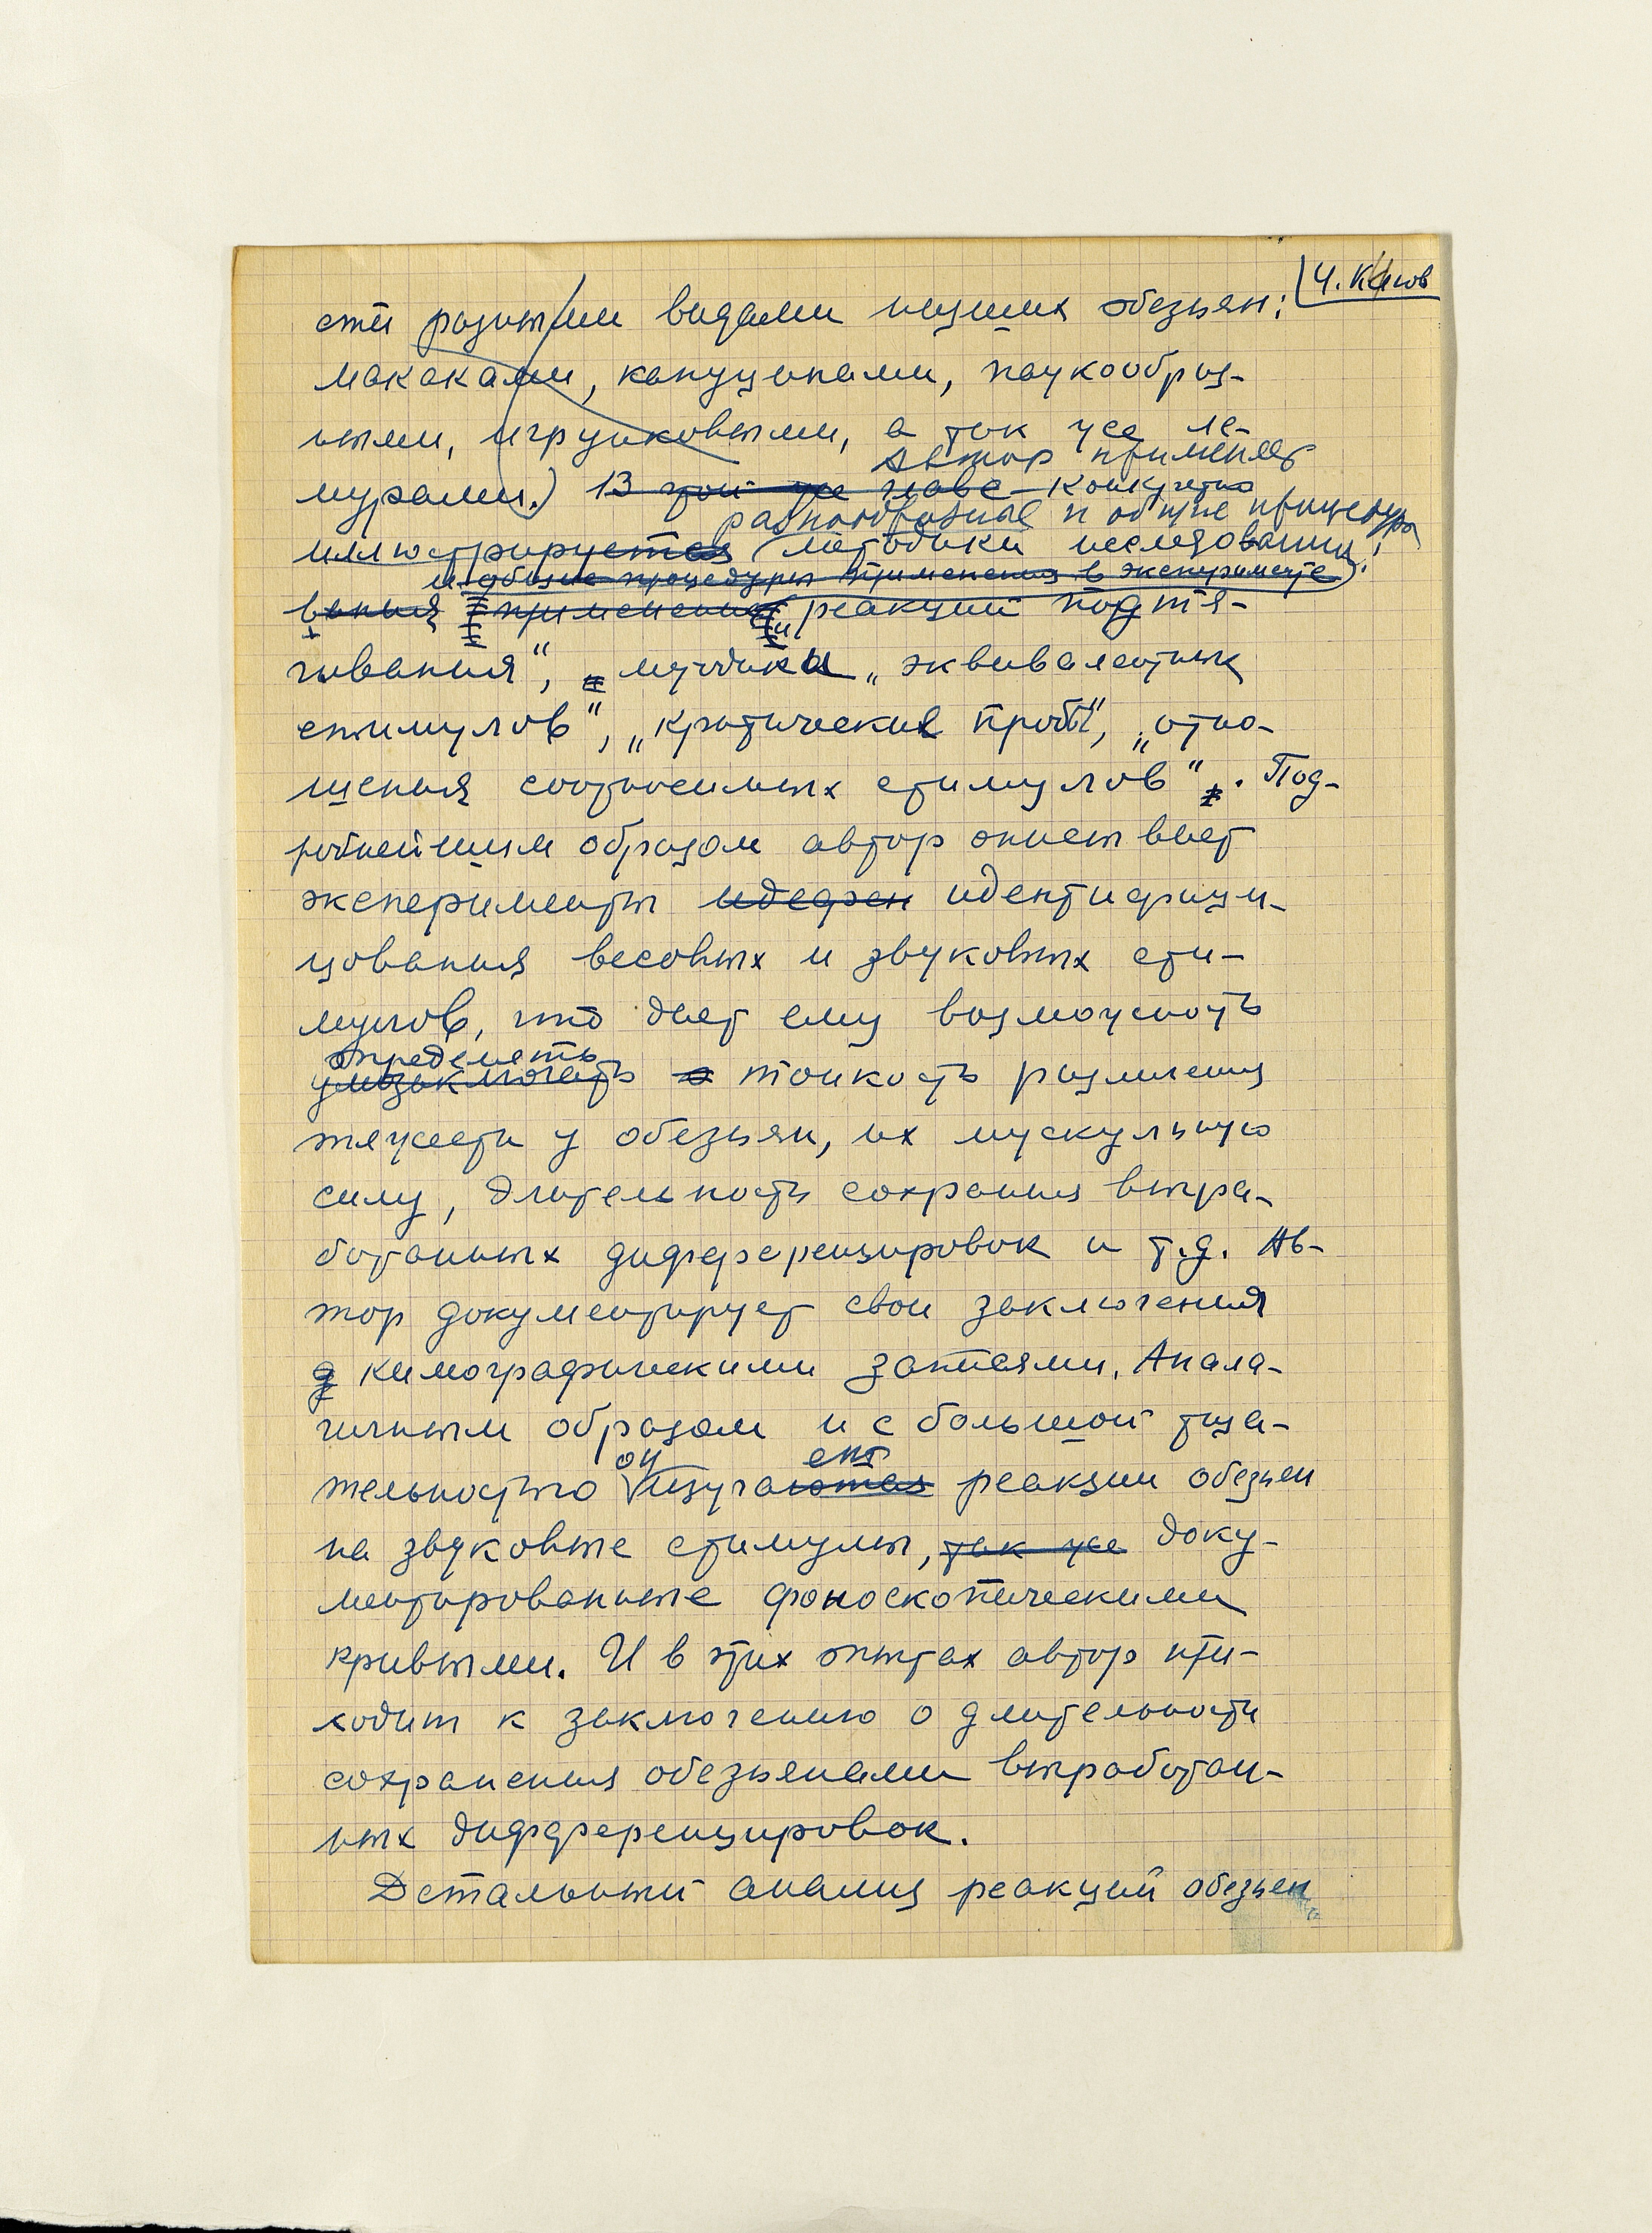 4. К
сти разными видами низших обезьян:
макаками, капуцинами, паукообраз-
ными, игрунковыми, а так же ле-
автор применяет
мурами.) В этой же главе конкретно
разнообразные и общие процедуры
иллюстрируется (методики исследования:
и общие процедуры применения в эксперименте)
вания применения „реакции подтя-
гивания“, методика „эквивалентных
стимулов“, „критические пробы“, „отно-
шения соотносимых стимулов“. Под-
робнейшим образом автор описывает
эксперименты идефен идентифици-
цования весовых и звуковых сти-
мулов, что дает ему возможность
определить
умозаключать о тонкость различения
тяжести у обезьян, их мускульную
силу, длительность сохрания выра-
ботанных дифференцировок и т.д. Ав-
тор документирует свои заключения
кимографическими записями. Анало-
гичным образом и с большой тща-
он ет
тельностью изучаются реакции обезьян
на звуковые стимулы, так же доку-
ментированные фоноскопическими
кривыми. И в этих опытах автор при-
ходит к заключению о длительности
сохранения обезьянами выработан-
ных дифференцировок.
Детальный анализ реакций обезьян